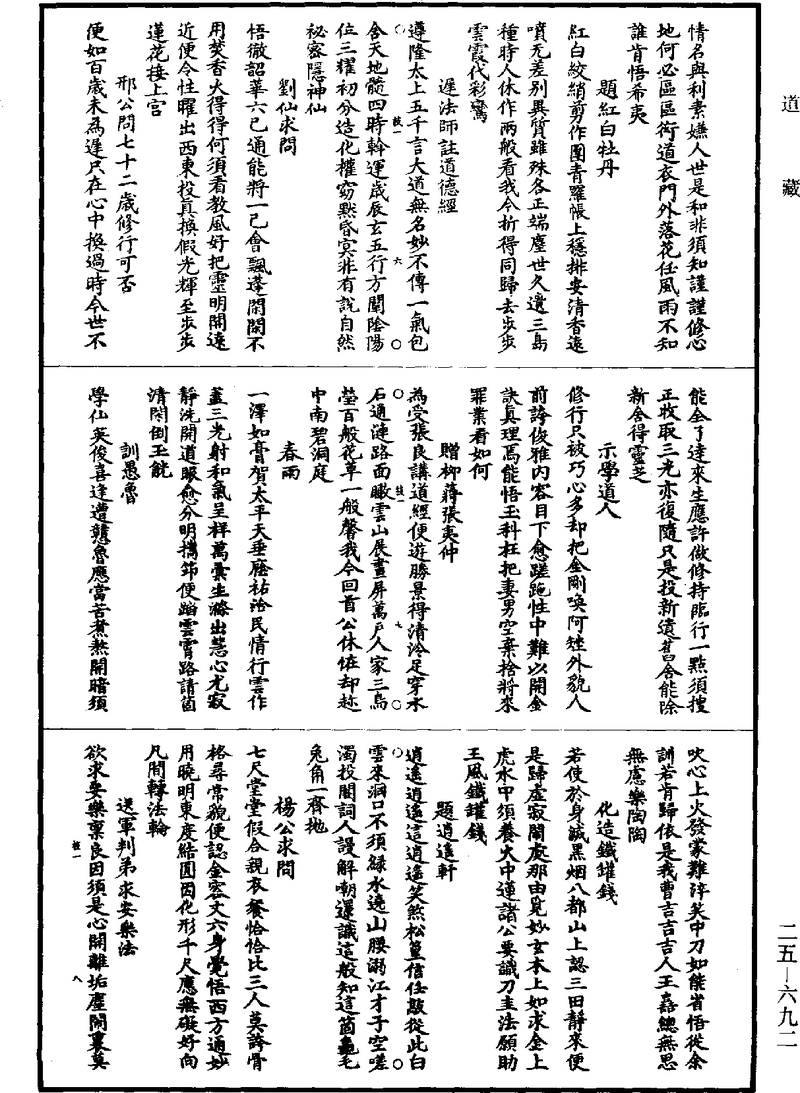 道藏
情名與利素嫌人世是和非須知謹謹修心
地何必區區衒道衣門外落花任風雨不知
誰肯悟希夷
題紅白牡丹
紅白絞綃剪作團青羅帳上穩排安清香遠
噴无差別異質雖殊各正端塵世久遺三島
種時人休作兩般看我今折得同歸去步步
雲霞代彩鸞
遲法師註道德經
遵隆太上五千言大道無名妙不傳一氣包
含天地髓四時斡運歲辰玄五行方闡陰陽
位三耀初分造化權窈默昏冥非有說自然
秘密隱神仙
劉仙求問
悟徹韶華六已通能將一己會飄蓬閑閑不
用焚香火得得何須看教風好把靈明開遠
近便令性曜出西東投真換假光輝至步步
蓮花接上宮
邢公問七十二歲修行可否
便如百歲未為遲只在心中換過時今世不
枝一
六
能全了達來生應許做修持臨行一點須搜
正收取三光亦復隨只是投新遺舊舍能除
新舍得靈芝
示學道人
修行只被巧心多却把金剛喚阿矬外貌人
前誇俊雅內容目下愈蹉跎性中難以開金
訣真理焉能悟玉科枉把妻男空棄捨將來
罪業看如何
贈柳蔣張夷仲
為受張良講道經便遊勝景得清泠足穿水
石通漣路面瞰雲山展畫屏萬戶人家三島
瑩百般花草一般馨我今回首公休怪却趂
中南碧洞庭
春雨
一澤如膏賀太平天垂廕祐洽民情行雲作
蓋三光射和氣呈祥萬彙生滌出慧心尤寂
靜洗開道眼愈分明攜節便蹈雲霄路請箇
清閑倒玉觥
訓愚魯
學仙英俊喜逢遭戇魯應當苦煮熬開暗須
枝一
七
吹心上火發蒙難淬笑中刀如能省悟從余
訓若肯歸依是我曹吉吉吉人王嚞總無思
無慮樂陶陶
化造鐵罐錢
若使於身滅黑烟八都山上認三田靜來便
是歸虛寂鬧處那由覓妙玄本上如求金上
虎水中須養火中蓮諸公要識刀圭法願助
王風鐵罐錢
題逍遙軒
逍遙逍遙這逍遙笑煞松篁信任敲從此白
雲來洞口不須綠水遶山腰溺江才子空嗟
濁投閣詞人謾解嘲還識這般知這箇龜毛
兔角一齊拋
楊公求問
七尺堂堂假合親衣餐恰恰比三人莫誇骨
格尋常貌便認金容丈六身覺悟西方通妙
用曉明東度結圓因化形千尺應無礙好向
凡間轉法輪
送軍判弟求安樂法
欲求安樂稟良因須是心開離垢塵鬧裏莫
枝一
八
二五—六九二